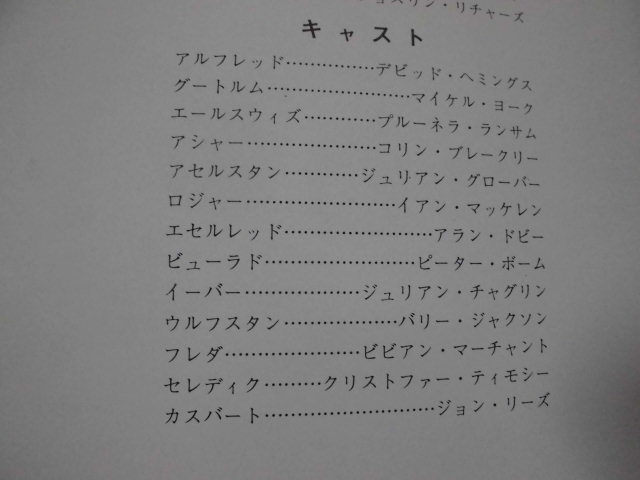 ジョスリン・リチャーズ
キャスト
アルフレッド……………デビッド・ヘミングス
グートルム……………………マイケル・ヨーク
エールスウィズ…………プルーネラ・ランサム
アシャー……………………コリン・ブレークリー
アセルスタン…………ジュリアン・グローバー
ロジャー………………………イアン・マッケレン
エセルレッド……………………アラン・ドビー
ビューラド………………………ピーター・ボーム
イーバー…………………ジュリアン・チャグリン
ウルフスタン…………………バリー・ジャクソン
フレダ……………………ビビアン・マーチャント
セレディク………クリストファー・ティモシー
カスバート…………………………ジョン・リーズ